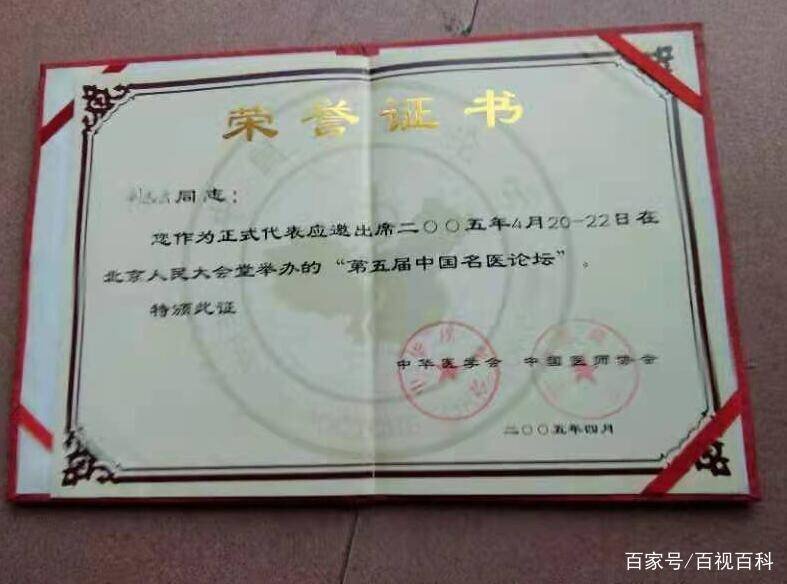 荣誉证书
同志：
您作为正式代表应邀出席二〇〇五年4月20-22日在
北京人民大会堂举办的“第五届中国名医论坛”。
特颁此证
中华医学会 中国医师协会
二〇〇五年四月
百家号/百视百科